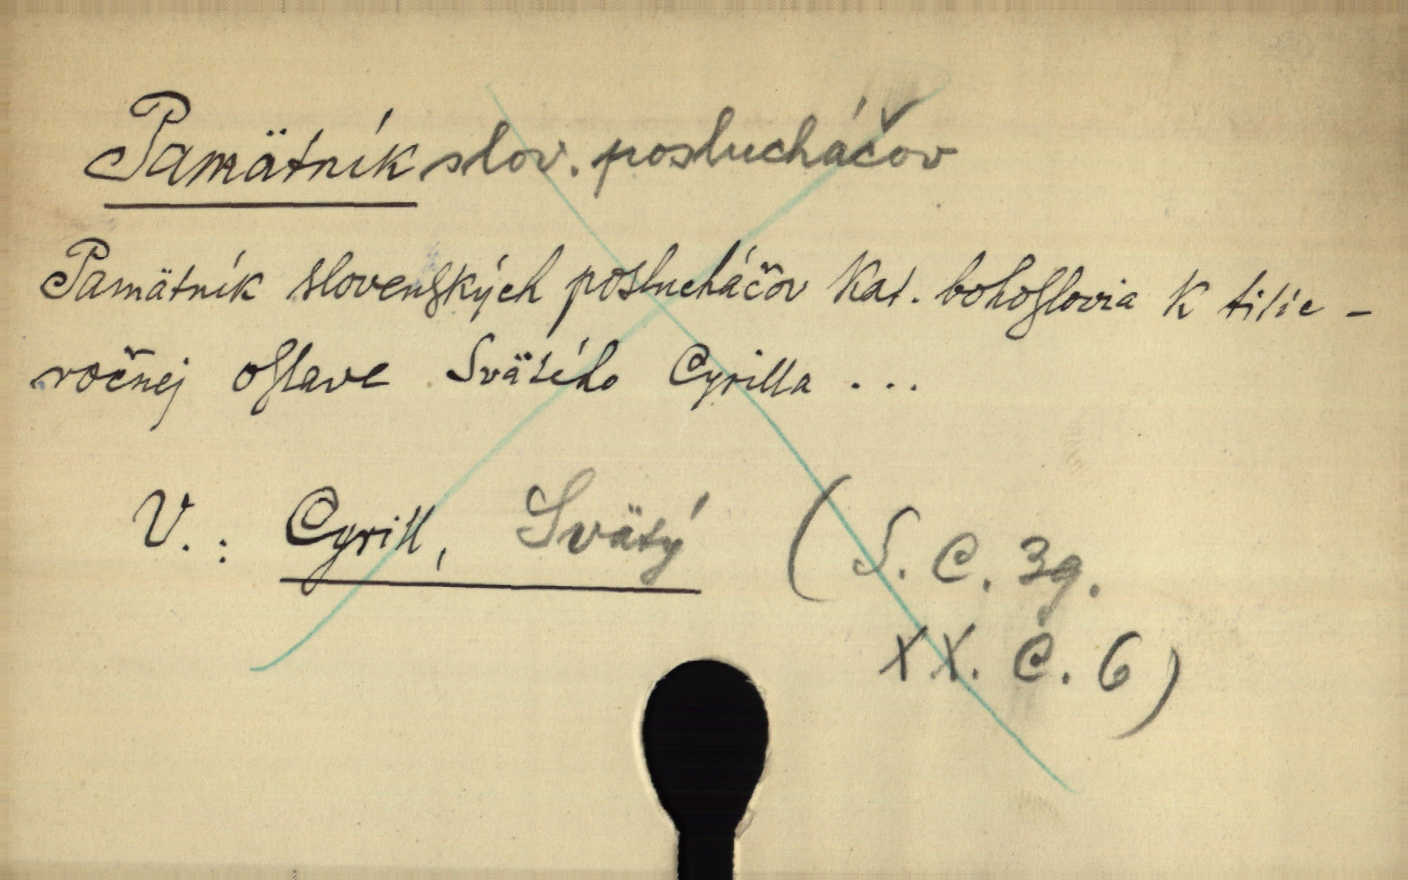 Pamätník slov. poslucháčov
Pamätník slovenských poslucháčov kat. bohoslovia k tisíc-
ročnej oslave Svätého Cyrilla ...
V.: Cyrill, Svätý (S. C. 39.
XX. C. 6)